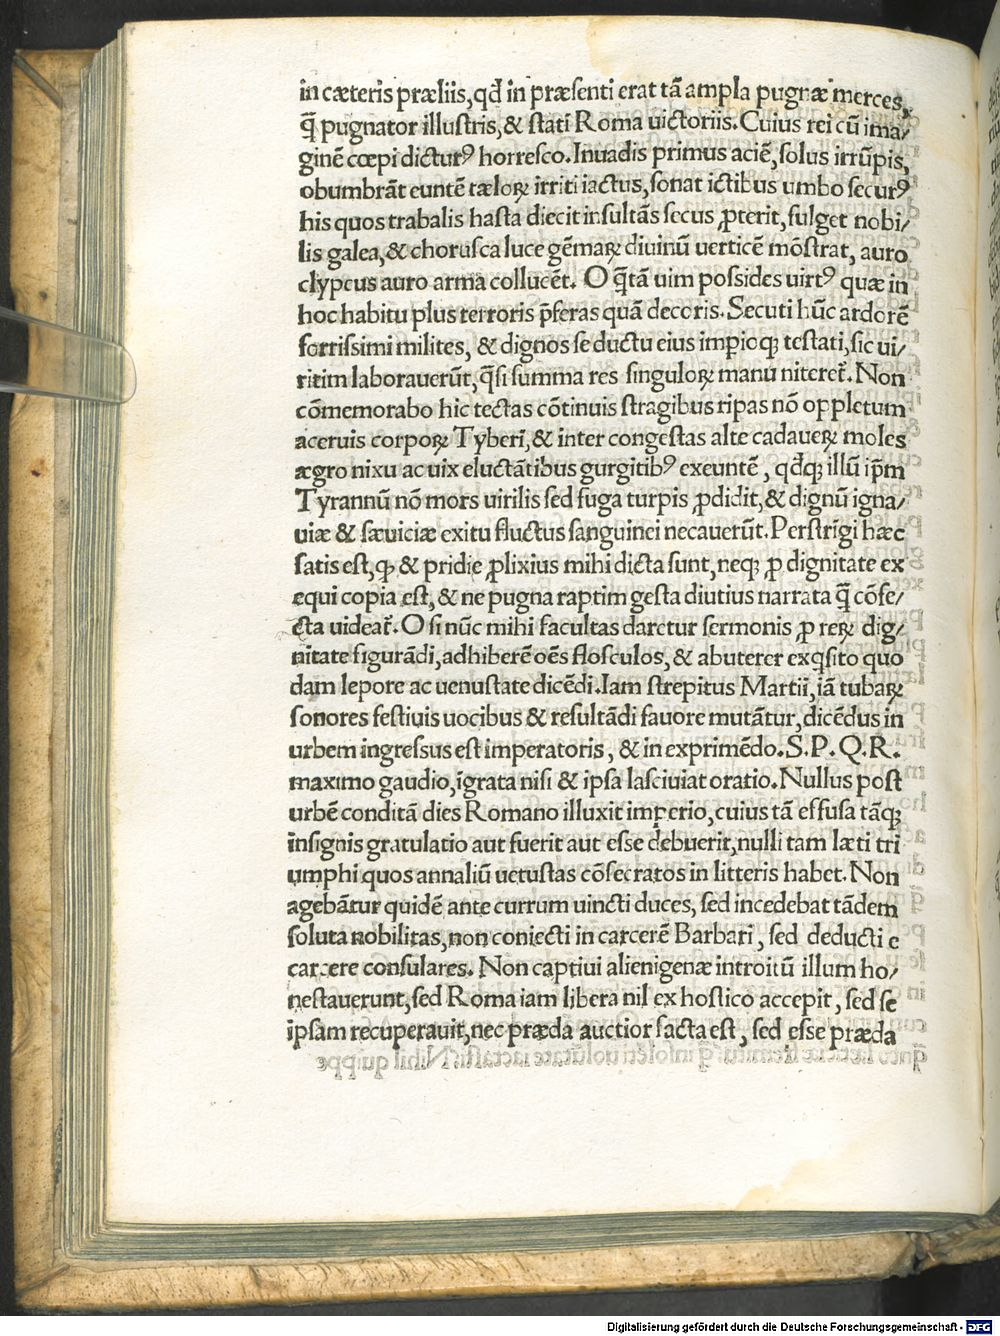 in cæteris præliis,qđ in præsenti erat tã ampla pugnæ merces,
q̃ pugnator illustris,& stati Roma uictoriis.Cuius rei cũ ima/
ginẽ cœpi dictur⁹ horresco.Inuadis primus aciẽ,solus irrũpis,
obumbrãt euntẽ tæloꝝ irriti iactus,sonat ictibus umbo secur⁹
his quos trabalis hasta diecit insultãs secus ꝓterit,fulget nobi/
lis galea,& chorusca luce gẽmaꝝ diuinũ uerticẽ mõstrat, auro
clypeus auro arma collucẽt. O q̃tã uim possides uirt⁹ quæ in
hoc habitu plus terroris p̃feras quã decoris.Secuti hũc ardorẽ
fortissimi milites, & dignos se ductu eius impioq; testati,sic ui/
ritim laborauerũt,q̃si summa res singuloꝝ manu niteret᷑.Non
cõmemorabo hic tectas cõtinuis stragibus ripas nõ oppletum
aceruis corpoꝝ Tyberi,& inter congestas alte cadaueꝝ moles
ægro nixu ac uix eluctãtibus gurgitib⁹ exeuntẽ , qđq; illũ ip̃m
Tyrannũ nõ mors uirilis sed fuga turpis ꝓdidit,& dignũ igna/
uiæ & sæuiciæ exitu fluctus sanguinei necauerũt.Perstrĩgi hæc
satis est,ꝙ & pridie ꝓlixius mihi dicta sunt,neq; ꝓ dignitate ex
equi copia est,& ne pugna raptim gesta diutius narrata q̃ cõfe/
cta uideat᷑.O si nũc mihi facultas daretur sermonis ꝓ reꝝ dig/
nitate figurãdi,adhiberẽ oẽs flosculos,& abuterer exq̇sito quo
dam lepore ac uenustate dicẽdi.Iam strepitus Martii,iã tubaꝝ
sonores festiuis uocibus & resultãdi fauore mutãtur,dicẽdus in
urbem ingressus est imperatoris, & in exprimẽdo.S.P.Q.R.
maximo gaudio,ĩgrata nisi & ipsa lasciuiat oratio.Nullus post
urbẽ conditã dies Romano illuxit imperio,cuius tã effusa tãq;
insignis gratulatio aut fuerit aut esse debuerit,nulli tam læti tri
umphi quos annaliũ uetustas cõsecratos in litteris habet.Non
agebãtur quidẽ ante currum uincti duces, sed incedebat tãdem
soluta nobilitas,non coniecti in carcerẽ Barbari, sed deducti e
carcere consulares. Non captiui alienigenæ introitũ illum ho/
nestauerunt,sed Roma iam libera nil ex hostico accepit, sed se
ipsam recuperauit,nec præda auctior facta est, sed esse præda
Digitalisierung gefördert durch die Deutsche Forschungsgemeinschaft - DFG